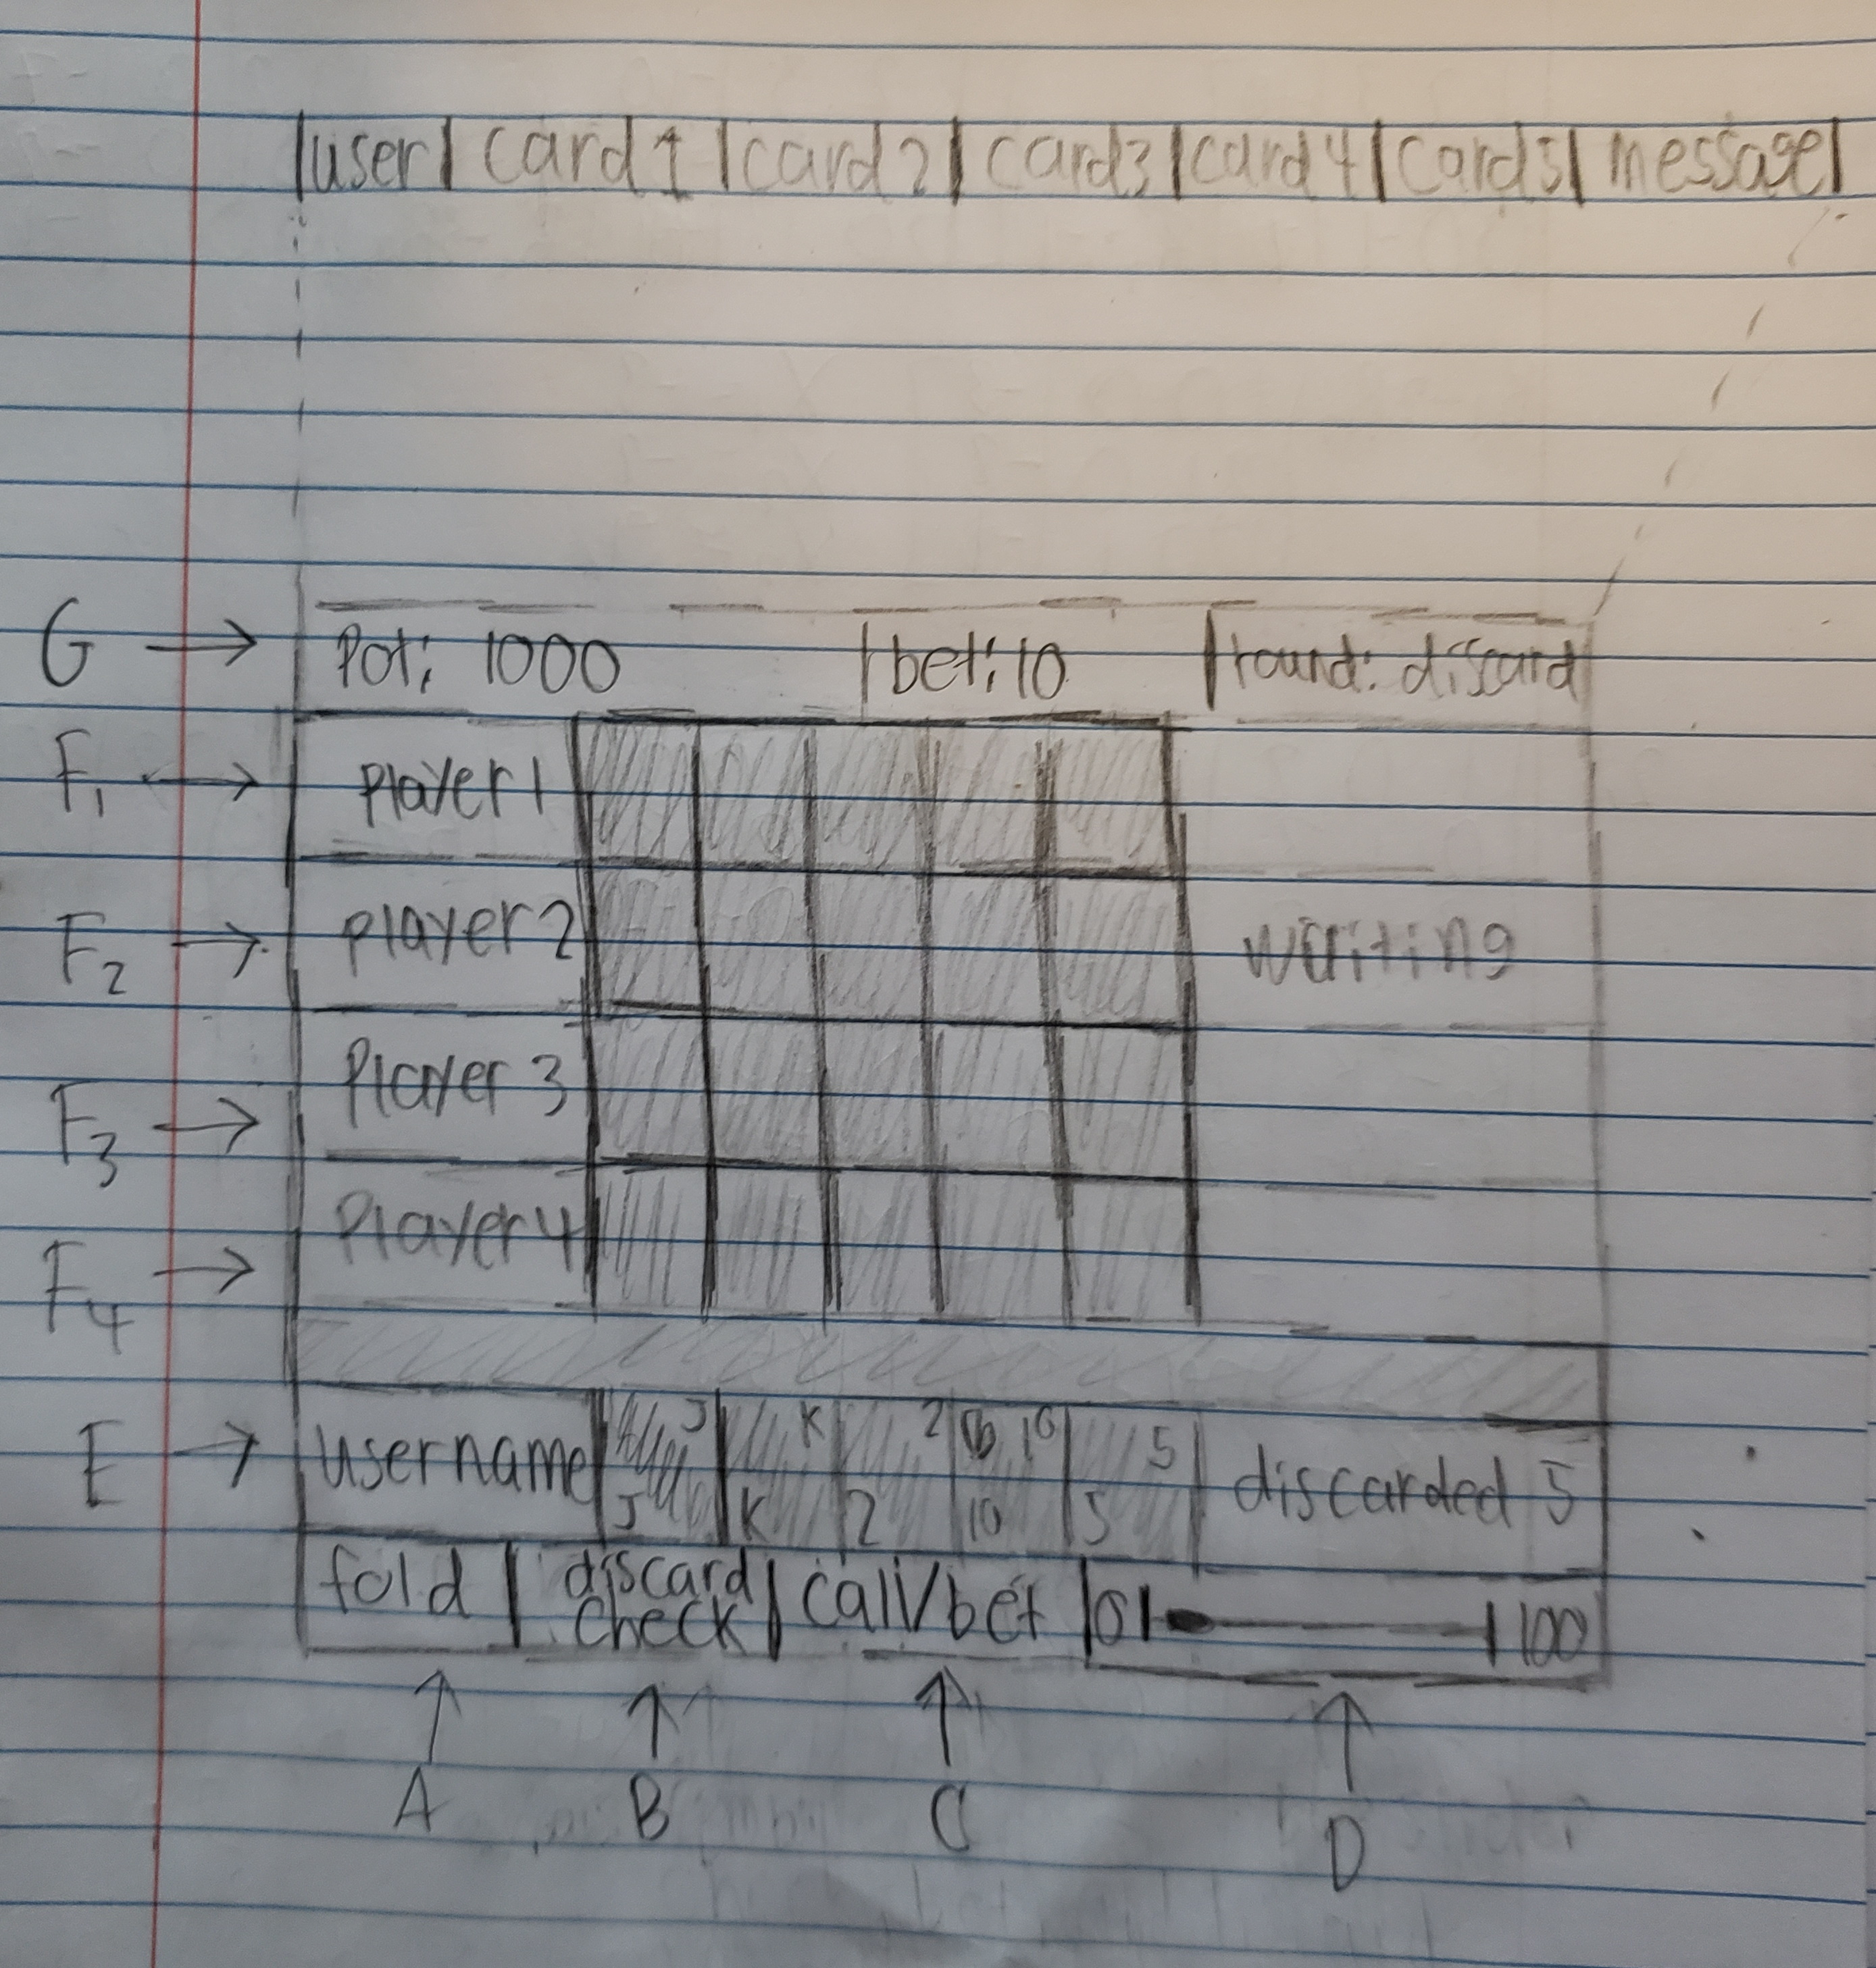 |user| card1 |card2| card3|card4|card5| message|
G → Pot: 1000 |bet: 10 |round: discard
F1 → Player1
F2 → Player2 waiting
F3 → Player 3
F4 → Player4
E → username J K 2 10 5 discarded 5
J K 2 10 5
fold | discard | call/bet |0 100
check
A B C D